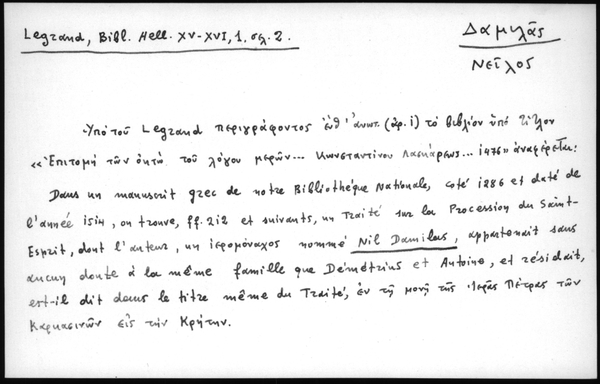 Legrand, Bibl. Hell. XV-XVI, 1. σελ. 2.
Δαμιλᾶς
Νεῖλος
Ὑπό τοῦ Legrand περιγράφοντος ἐνθ' ἀνωτ. (ἀρ. 1) τό βιβλίον ὑπό τίτλον
«Ἐπιτομή τῶν ὀκτώ τοῦ λόγου μερῶν... Κωνσταντίνου Λασκάρεως... 1476» ἀναφέρεται:
Dans un manuscrit grec de notre Bibliothéque Nationale, coté 1286 et daté de
l'année 1514, on trouve, ff. 212 et suivants, un Traité sur la Procession du Saint-
Esprit, dont l'auteur, un ἱερομόναχος nommé Nil Damilas, appartenait sans
aucun doute à la même famille que Démétrius et Antoine, et résidait,
est-il dit dans le titre même du Traité, ἐν τῇ μονῇ τῆς Ἱερᾶς Πέτρας τῶν
Καρκασινῶν εἰς τήν Κρήτην.